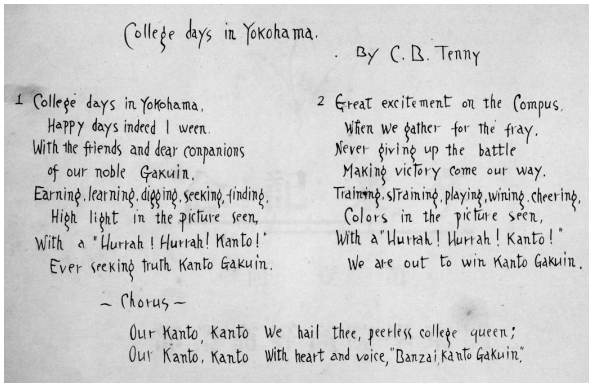 College days in Yokohama.
By C. B. Tenny
1 College days in Yokohama,
Happy days indeed I ween.
With the friends and dear conpanions
of our noble Gakuin.
Earning, learning, digging, seeking, finding,
High light in the picture seen,
With a "Hurrah! Hurrah! Kanto!"
Ever seeking truth Kanto Gakuin.
2 Great excitement on the Compus,
When we gather for the fray.
Never giving up the battle
Making victory come our way.
Training, straining, playing, wining, cheering,
Colors in the picture seen,
With a "Hurrah! Hurrah! Kanto!"
We are out to win Kanto Gakuin.
~ Chorus ~
Our Kanto, Kanto We hail thee, peerless college queen;
Our Kanto, Kanto With heart and voice, "Banzai, Kanto Gakuin."